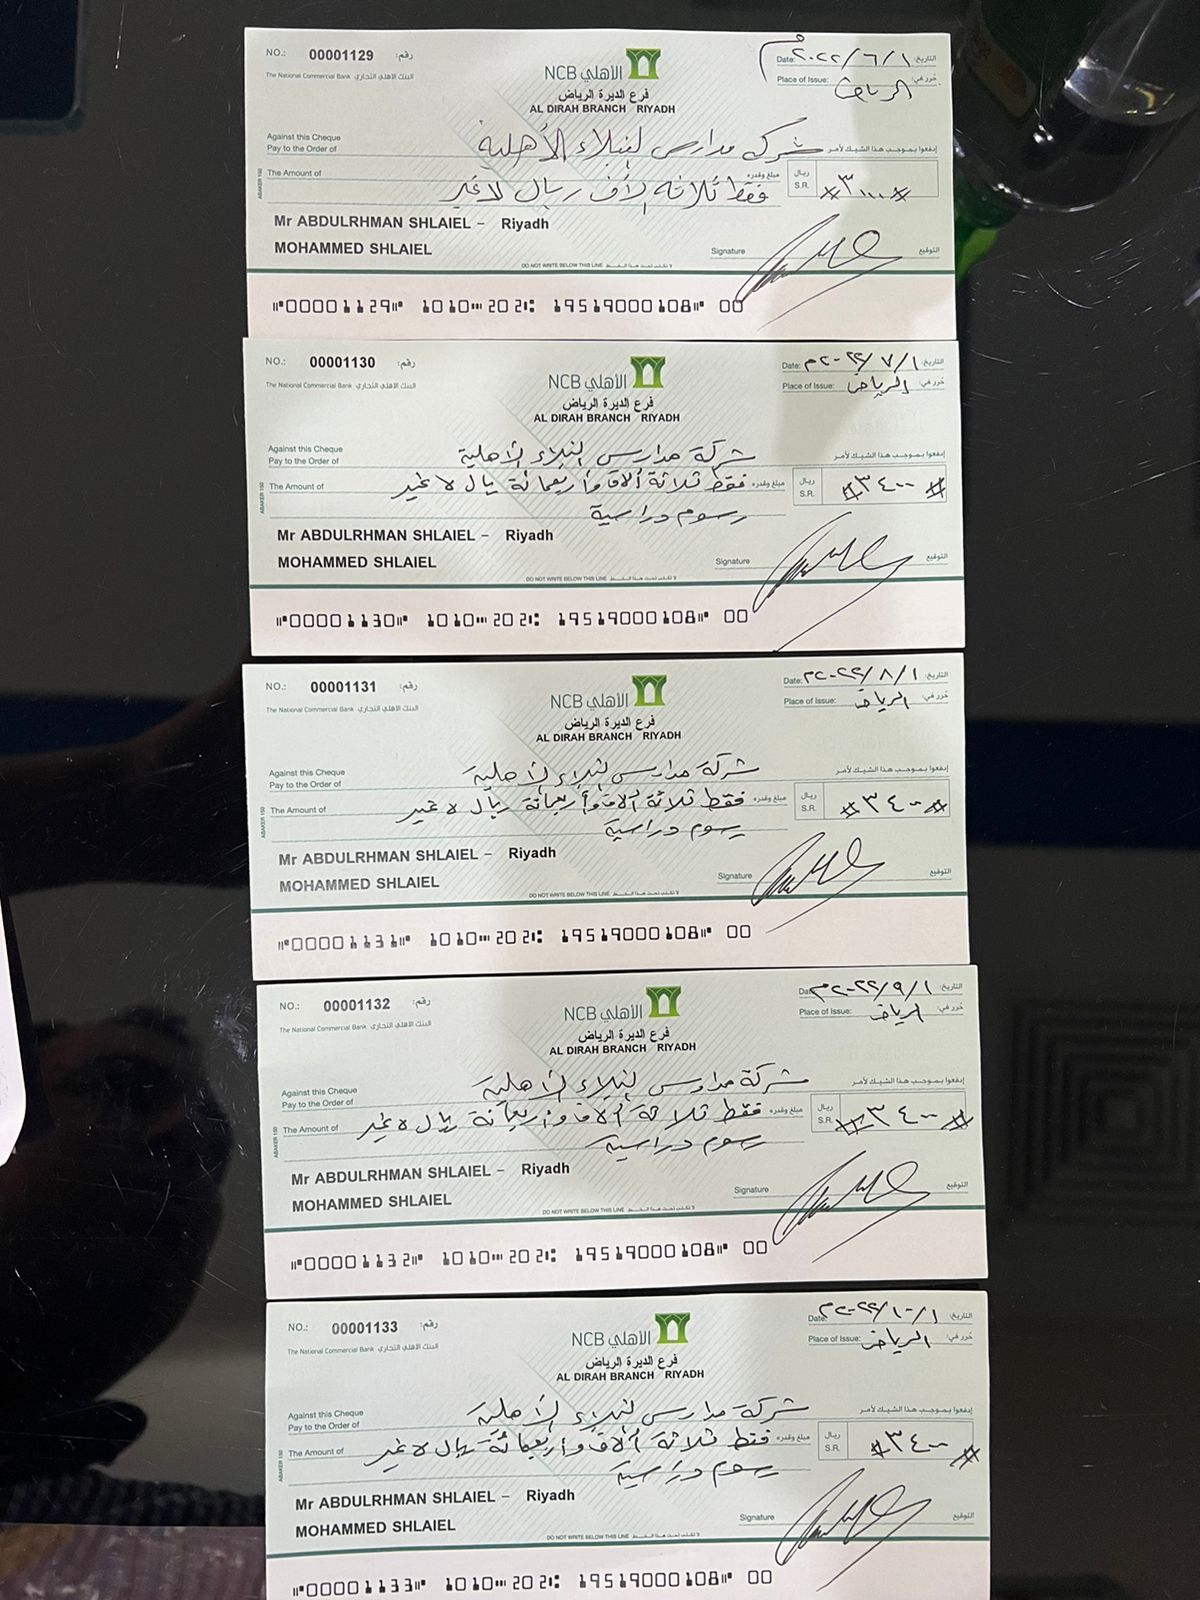 NO.: 00001129 رقم:
The National Commercial Bank البنك الأهلي التجاري
NCB الأهلي
فرع الديرة الرياض
AL DIRAH BRANCH RIYADH
Date: ٢٠٢٢/٦/١م التاريخ:
Place of Issue: الرياض حُرر في:
Against this Cheque
Pay to the Order of شركة مدارس النبلاء الأهلية إدفعوا بموجب هذا الشيك لأمر
The Amount of فقط ثلاثة آلاف ريال لا غير مبلغ وقدره
ريال S.R. #٣٠٠٠#
ABAKER 150
Mr ABDULRHMAN SHLAIEL – Riyadh
MOHAMMED SHLAIEL
Signature التوقيع
DO NOT WRITE BELOW THIS LINE لا تكتب تحت هذا الخط
00001129 1010 202 19519000108 00
NO.: 00001130 رقم:
The National Commercial Bank البنك الأهلي التجاري
NCB الأهلي
فرع الديرة الرياض
AL DIRAH BRANCH RIYADH
Date: ٢٠٢٢/٧/١م التاريخ:
Place of Issue: الرياض حُرر في:
Against this Cheque
Pay to the Order of شركة مدارس النبلاء الأهلية إدفعوا بموجب هذا الشيك لأمر
The Amount of فقط ثلاثة آلاف وأربعمائة ريال لا غير مبلغ وقدره
ريال S.R. #٣٤٠٠#
رسوم دراسية
ABAKER 150
Mr ABDULRHMAN SHLAIEL – Riyadh
MOHAMMED SHLAIEL
Signature التوقيع
DO NOT WRITE BELOW THIS LINE لا تكتب تحت هذا الخط
00001130 1010 202 19519000108 00
NO.: 00001131 رقم:
The National Commercial Bank البنك الأهلي التجاري
NCB الأهلي
فرع الديرة الرياض
AL DIRAH BRANCH RIYADH
Date: ٢٠٢٢/٨/١م التاريخ:
Place of Issue: الرياض حُرر في:
Against this Cheque
Pay to the Order of شركة مدارس النبلاء الأهلية إدفعوا بموجب هذا الشيك لأمر
The Amount of فقط ثلاثة آلاف وأربعمائة ريال لا غير مبلغ وقدره
ريال S.R. #٣٤٠٠#
رسوم دراسية
ABAKER 150
Mr ABDULRHMAN SHLAIEL – Riyadh
MOHAMMED SHLAIEL
Signature التوقيع
DO NOT WRITE BELOW THIS LINE لا تكتب تحت هذا الخط
00001131 1010 202 19519000108 00
NO.: 00001132 رقم:
The National Commercial Bank البنك الأهلي التجاري
NCB الأهلي
فرع الديرة الرياض
AL DIRAH BRANCH RIYADH
Date: ٢٠٢٢/٩/١م التاريخ:
Place of Issue: الرياض حُرر في:
Against this Cheque
Pay to the Order of شركة مدارس النبلاء الأهلية إدفعوا بموجب هذا الشيك لأمر
The Amount of فقط ثلاثة آلاف وأربعمائة ريال لا غير مبلغ وقدره
ريال S.R. #٣٤٠٠#
رسوم دراسية
ABAKER 150
Mr ABDULRHMAN SHLAIEL – Riyadh
MOHAMMED SHLAIEL
Signature التوقيع
DO NOT WRITE BELOW THIS LINE لا تكتب تحت هذا الخط
00001132 1010 202 19519000108 00
NO.: 00001133 رقم:
The National Commercial Bank البنك الأهلي التجاري
NCB الأهلي
فرع الديرة الرياض
AL DIRAH BRANCH RIYADH
Date: ٢٠٢٢/١٠/١م التاريخ:
Place of Issue: الرياض حُرر في:
Against this Cheque
Pay to the Order of شركة مدارس النبلاء الأهلية إدفعوا بموجب هذا الشيك لأمر
The Amount of فقط ثلاثة آلاف وأربعمائة ريال لا غير مبلغ وقدره
ريال S.R. #٣٤٠٠#
رسوم دراسية
ABAKER 150
Mr ABDULRHMAN SHLAIEL – Riyadh
MOHAMMED SHLAIEL
Signature التوقيع
DO NOT WRITE BELOW THIS LINE لا تكتب تحت هذا الخط
00001133 1010 202 19519000108 00